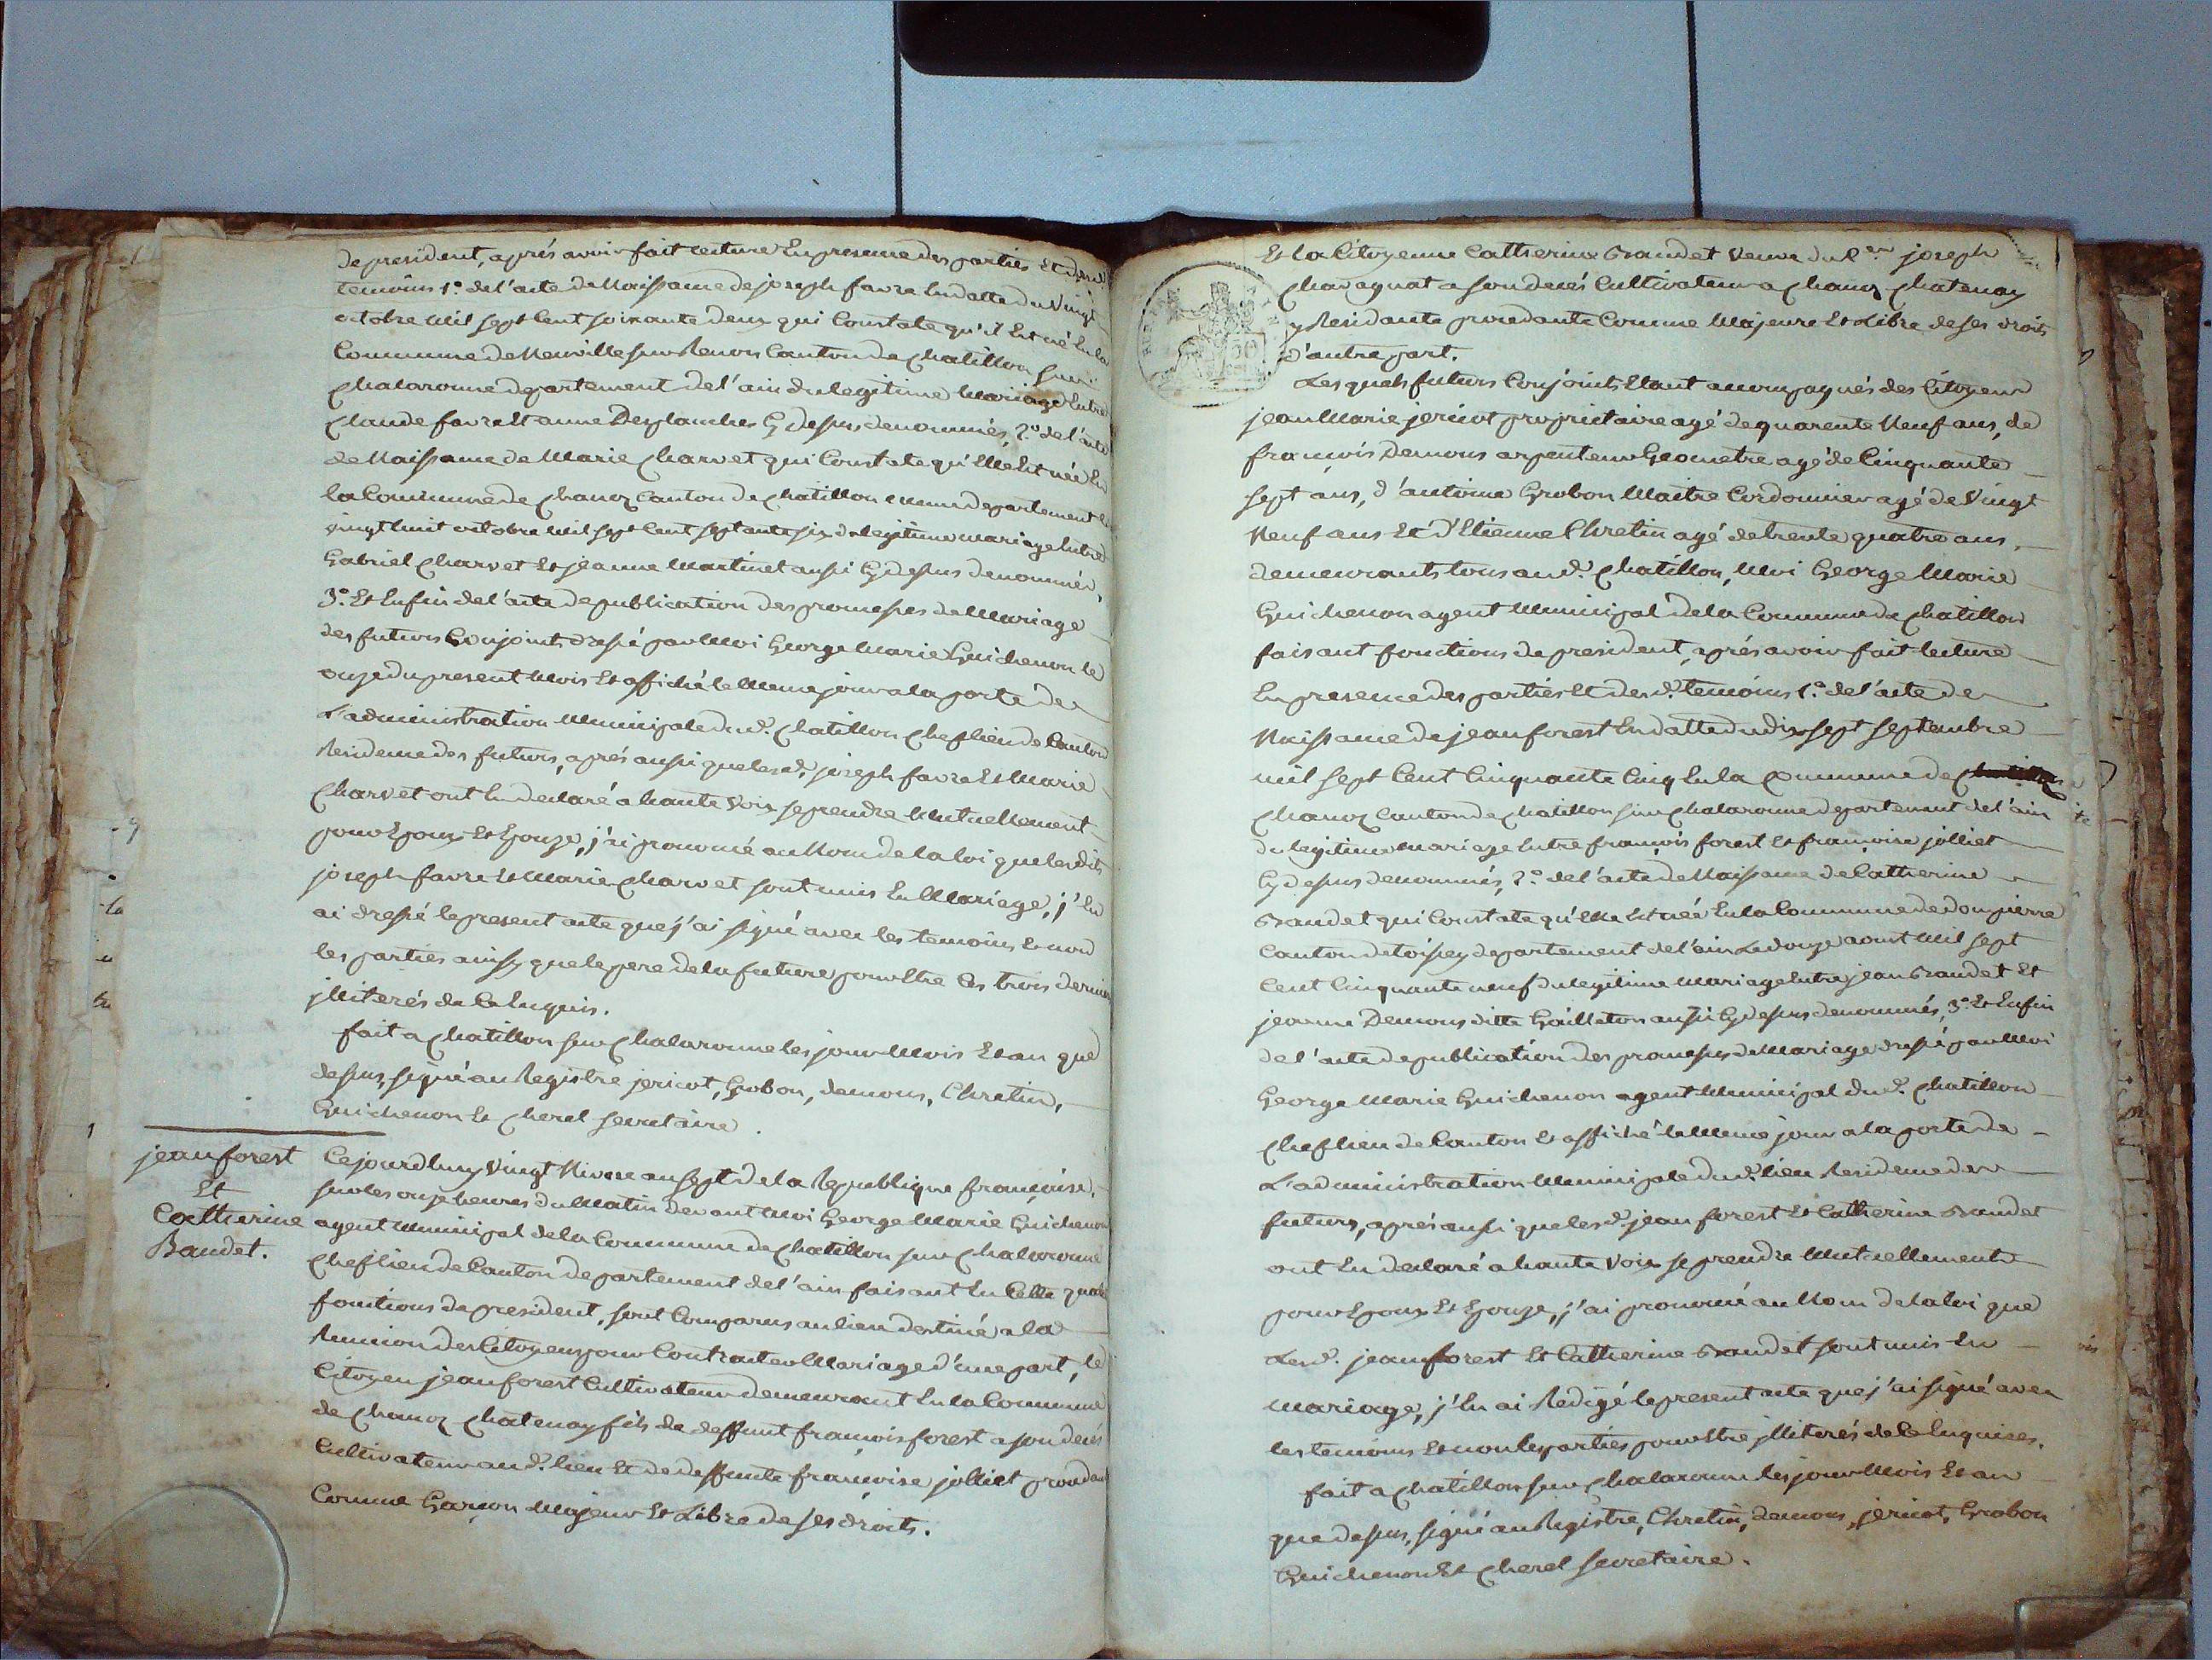 de president, aprés avoir fait lecture En presence des parties Et des d.
temoins 1.º de l'acte de Naissance de joseph favre En datte du Vingt
octobre Mil sept Cent soixante deux qui Constate qu'il Est né En la
Commune de Neuville sur Renon Canton de Chatillon sur
Chalaronne departement de l'ain du legitime Mariage Entre
Claude favre Et anne Desplanches Cy dessus denommés, 2.º de l'acte
de Naissance de Marie Charvet qui Constate qu'Elle Est née En
la Commune de Chanoz Canton de Chatillon meme departement le
vingt huit octobre Mil sept Cent septante six du legitime mariage Entre
Gabriel Charvet Et jeanne Martinet aussi Cy dessus denommés,
3.º Et Enfin de l'acte de publication des promesses de Mariage
des futurs Conjoints dressé par Moi George Marie Guichenon le
onze du present Mois Et affiché le Meme jour a la porte de
L'administration Municipale dud. Chatillon Chef lieu de Canton
Residence des futurs, aprés aussi que lesd. joseph favre Et Marie
Charvet ont Eu declaré a haute Voix se prendre Mutuellement
pour Epoux Et Epouze, j'ai prononcé au Nom de la loi que lesdits
joseph favre Et Marie Charvet sont unis En Mariage, j'En
ai dressé le present acte que j'ai signé avec les temoins Et non
les parties ainsy que le pere de la future pour Etre les trois derniers
jlliterés de Ce Enquis.
fait a Chatillon sur Chalaronne les jour Mois Et an que
dessus, signé au Registre jericot, Grobon, demons, Chretin,
Guichenon Et Cherel secretaire.
jean forest
Et
Catherine
Baudet.
Cejourdhuy Vingt Nivose an sept de la Republique francoise,
sur les onze heures du Matin devant Moi George Marie Guichenon
agent Municipal de la Commune de Chatillon sur Chalaronne
Chef lieu de Canton departement de l'ain faisant En Cette qualité
fonctions de president, sont Comparus au lieu destiné a la
Reunion des Citoyens pour Contracter Mariage d'une part, le
Citoyen jean forest Cultivateur demeurant En la Commune
de Chanoz Chatenay fils de deffunt francois forest a son decés
Cultivateur aud. lieu Et de deffunte francoise jolliet procedant
Comme Garçon Majeur Et Libre de ses droits.
Et la Citoyenne Catherine Baudet Veuve du C.en joseph
Chavagnat a son decés Cultivateur a Chanoz Chatenay
y Residante procedante Comme Majeure Et Libre de ses droits
d'autre part.
Lesquels futurs Conjoints Etant accompagnés des Citoyens
jean Marie jericot proprietaire agé de quarente Neuf ans, de
francois Demons arpenteur Geometre agé de Cinquante
sept ans, d'antoine Grobon Maitre Cordonnier agé de Vingt
Neuf ans Et d'Etienne Chretin agé de trente quatre ans,
demeurants tous aud. Chatillon, Moi George Marie
Guichenon agent Municipal de la Commune de Chatillon
faisant fonctions de president, aprés avoir fait lecture
En presence des parties Et des d. temoins 1.º de l'acte de
Naissance de jean forest En datte du dix sept septembre
mil sept Cent Cinquante Cinq En la Commune de
Chanoz Canton de Chatillon sur Chalaronne departement de l'ain
du legitime mariage Entre francois forest Et francoise jolliet
Cy dessus denommés, 2.º de l'acte de Naissance de Catherine
Baudet qui Constate qu'Elle Est née En la Commune de dompierre
Canton de toissey departement de l'ain Le douze aoust Mil sept
Cent Cinquante neuf du legitime Mariage Entre jean Baudet Et
jeanne Demons ditte Guilleton aussi Cy dessus denommés, 3.º Et Enfin
de l'acte de publication des promesses de Mariage dressé par Moi
George Marie Guichenon agent Municipal dud. Chatillon
Chef lieu de Canton Et affiché le Meme jour a la porte de
L'administration Municipale dud. lieu Residence des
futurs, aprés aussi que lesd. jean forest Et Catherine Baudet
ont Eu declaré a haute Voix se prendre Mutuellement
pour Epoux Et Epouze, j'ai prononcé au Nom de la loi que
Lesd. jean forest Et Catherine Baudet sont unis En
mariage, j'En ai Redigé le present acte que j'ai signé avec
les temoins Et non les parties pour Etre jlliterés de Ce Enquises.
fait a Chatillon sur Chalaronne les jour Mois Et an
que dessus, signé au Registre, Chretin, demons, jericot, Grobon
Guichenon Et Cherel secretaire.